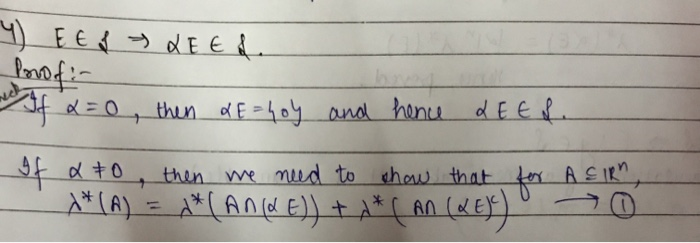 4) E ∈ 𝓛 → αE ∈ 𝓛.
Proof:-
If α = 0, then αE = {0} and hence αE ∈ 𝓛.
If α ≠ 0, then we need to show that for A ⊆ ℝⁿ,
λ*(A) = λ*(A∩(αE)) + λ*(A∩(αE)ᶜ) → ①